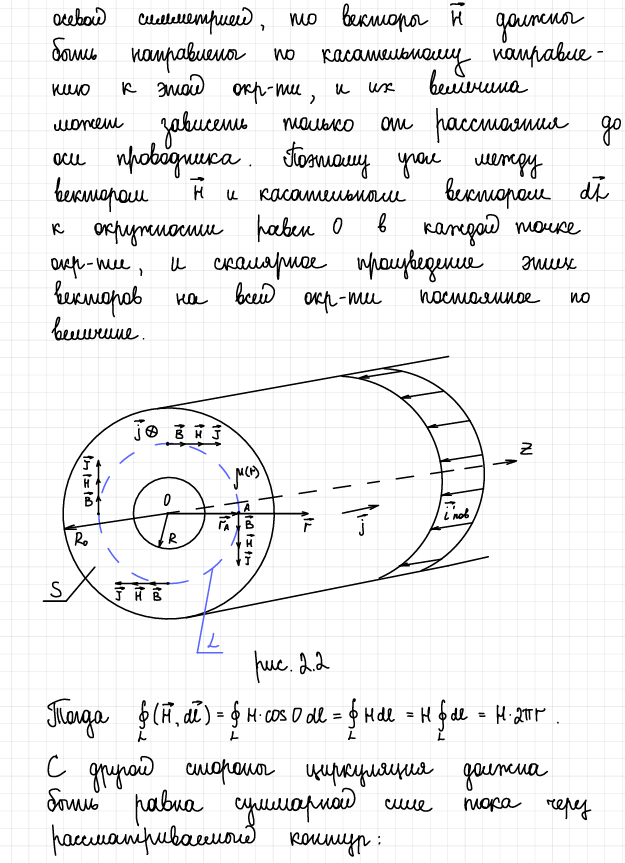 осевой симметрией, то векторы H⃗ должны
быть направлены по касательному направле-
нию к этой окр-ти, и их величина
может зависеть только от расстояния до
оси проводника. Поэтому угол между
вектором H⃗ и касательным вектором dl⃗
к окружности равен 0 в каждой точке
окр-ти, и скалярное произведение этих
векторов на всей окр-ти постоянное по
величине.
j⃗ ⊗ B⃗ H⃗ J⃗
J⃗
H⃗
B⃗
μ(r)
Z
O
A
r⃗_A
B⃗
H⃗
J⃗
r⃗
j⃗
i⃗'пов
R₀
R
S
J⃗ H⃗ B⃗
L
рис. 2.2
Тогда ∮_L (H⃗, dl⃗) = ∮_L H·cos 0 dl = ∮_L H dl = H ∮_L dl = H·2πr.
С другой стороны циркуляция должна
быть равна суммарной силе тока через
рассматриваемый контур: